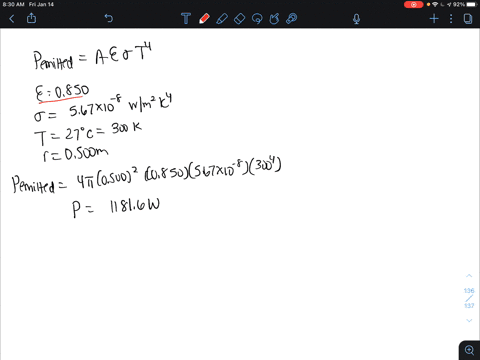 8:30 AM Fri Jan 14
92%
Pemitted = A ε σ T⁴
ε = 0.850
σ = 5.67×10⁻⁸ W/m² K⁴
T = 27°C = 300 K
r = 0.500m
Pemitted = 4π(0.500)² (0.850)(5.67×10⁻⁸)(300⁴)
P = 1181.6W
136
137